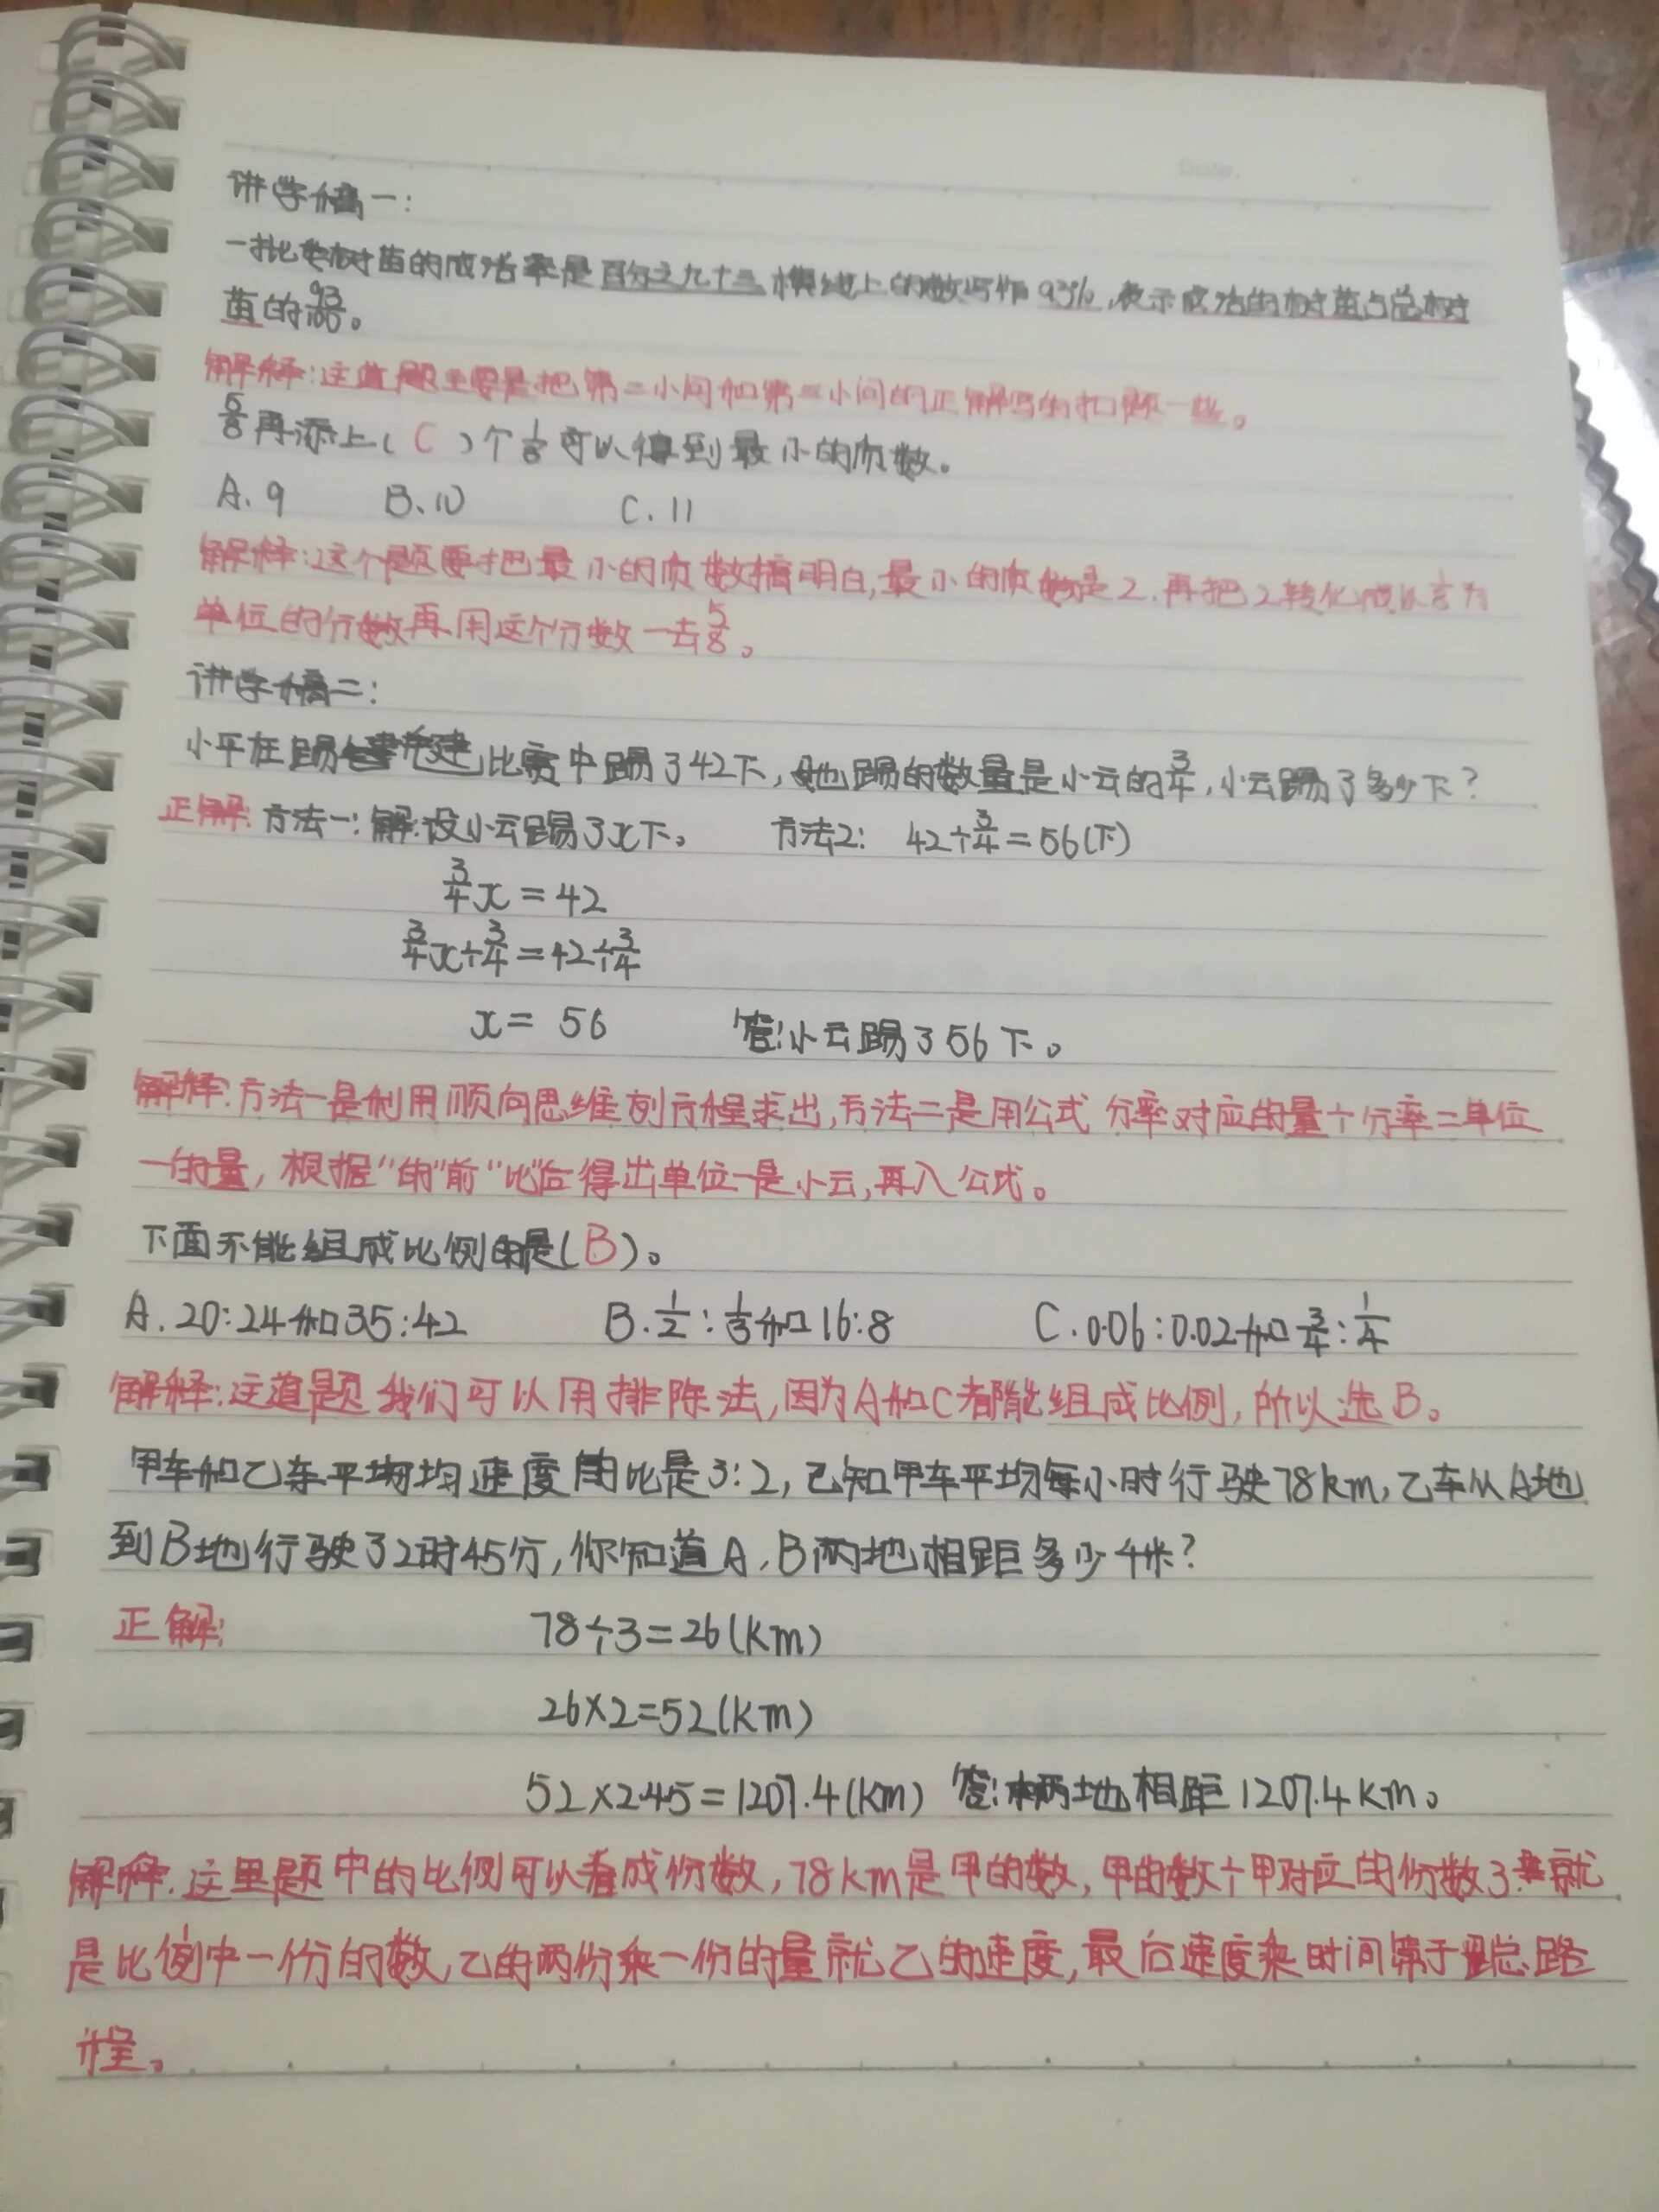 讲学稿一:
一批树苗的成活率是百分之九十三横线上的数写作93%,表示成活的树苗占总树
苗的93/100。
解释:这道题主要是把第二小问和第三小问的正解写的扣题一些。
5/8再添上(C)个1/8可以得到最小的质数。
A.9 B.10 C.11
解释:这个题要把最小的质数搞明白,最小的质数是2.再把2转化成以1/8为
单位的分数再用这个分数一去5/8。
讲学稿二:
小平在踢毽比赛中踢了42下,她踢的数量是小云的3/4,小云踢了多少下?
正解:方法一:解:设小云踢了x下。 方法2: 42÷3/4=56(下)
3/4x=42
3/4x÷3/4=42÷3/4
x=56 答:小云踢了56下。
解释:方法一是利用顺向思维列方程求出,方法二是用公式 分率对应的量÷分率=单位
一的量,根据"的"前"比"后得出单位一是小云,再入公式。
下面不能组成比例的是(B)。
A.20:24和35:42 B.1/2:1/3和16:8 C.0.06:0.02和3/4:1/4
解释:这道题我们可以用排除法,因为A和C都能组成比例,所以选B。
甲车和乙车平均速度的比是3:2,已知甲车平均每小时行驶78km,乙车从A地
到B地行驶了2时45分,你知道A,B两地相距多少千米?
正解: 78÷3=26(km)
26×2=52(km)
52×2.45=1207.4(km) 答:两地相距1207.4km。
解释:这里题中的比例可以看成份数,78km是甲的数,甲的数÷甲对应的份数3就
是比例中一份的数,乙的两份乘一份的量就乙的速度,最后速度乘时间等于总路
程。